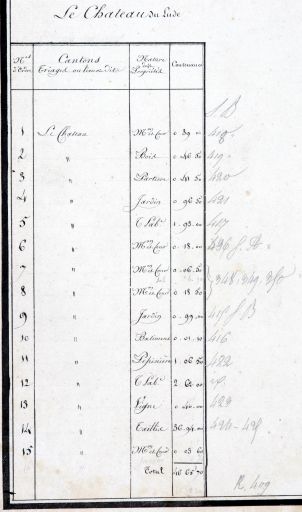 Le Chateau du Lude
Nos d'Ordre Cantons Triages ou lieux dits Nature des Propriétés Contenance
S B
1 Le Chateau Mon et Cour 0 39 00 418
2 " Bois 0 46 50 419
3 " Parterre 0 41 50 420
4 " Jardin 0 96 50 421
5 " T. Lab. 1 93 00 417
6 " Mon et Cour 0 18 00
7 " Mon et Cour 0 06 50
8 " Mon et Cour 0 18 50 348. 349. 350
9 " Jardin 0 99 00 415 S B
10 " Batiment 0 01 30 416
11 " Pépinière 1 06 50 422
12 " T. Lab. 2 60 00
13 " Vigne 0 40 00 423
14 " Taillis 36 94 00
15 " Mon et Cour 0 03 60
Total 46 65 70
R. 409